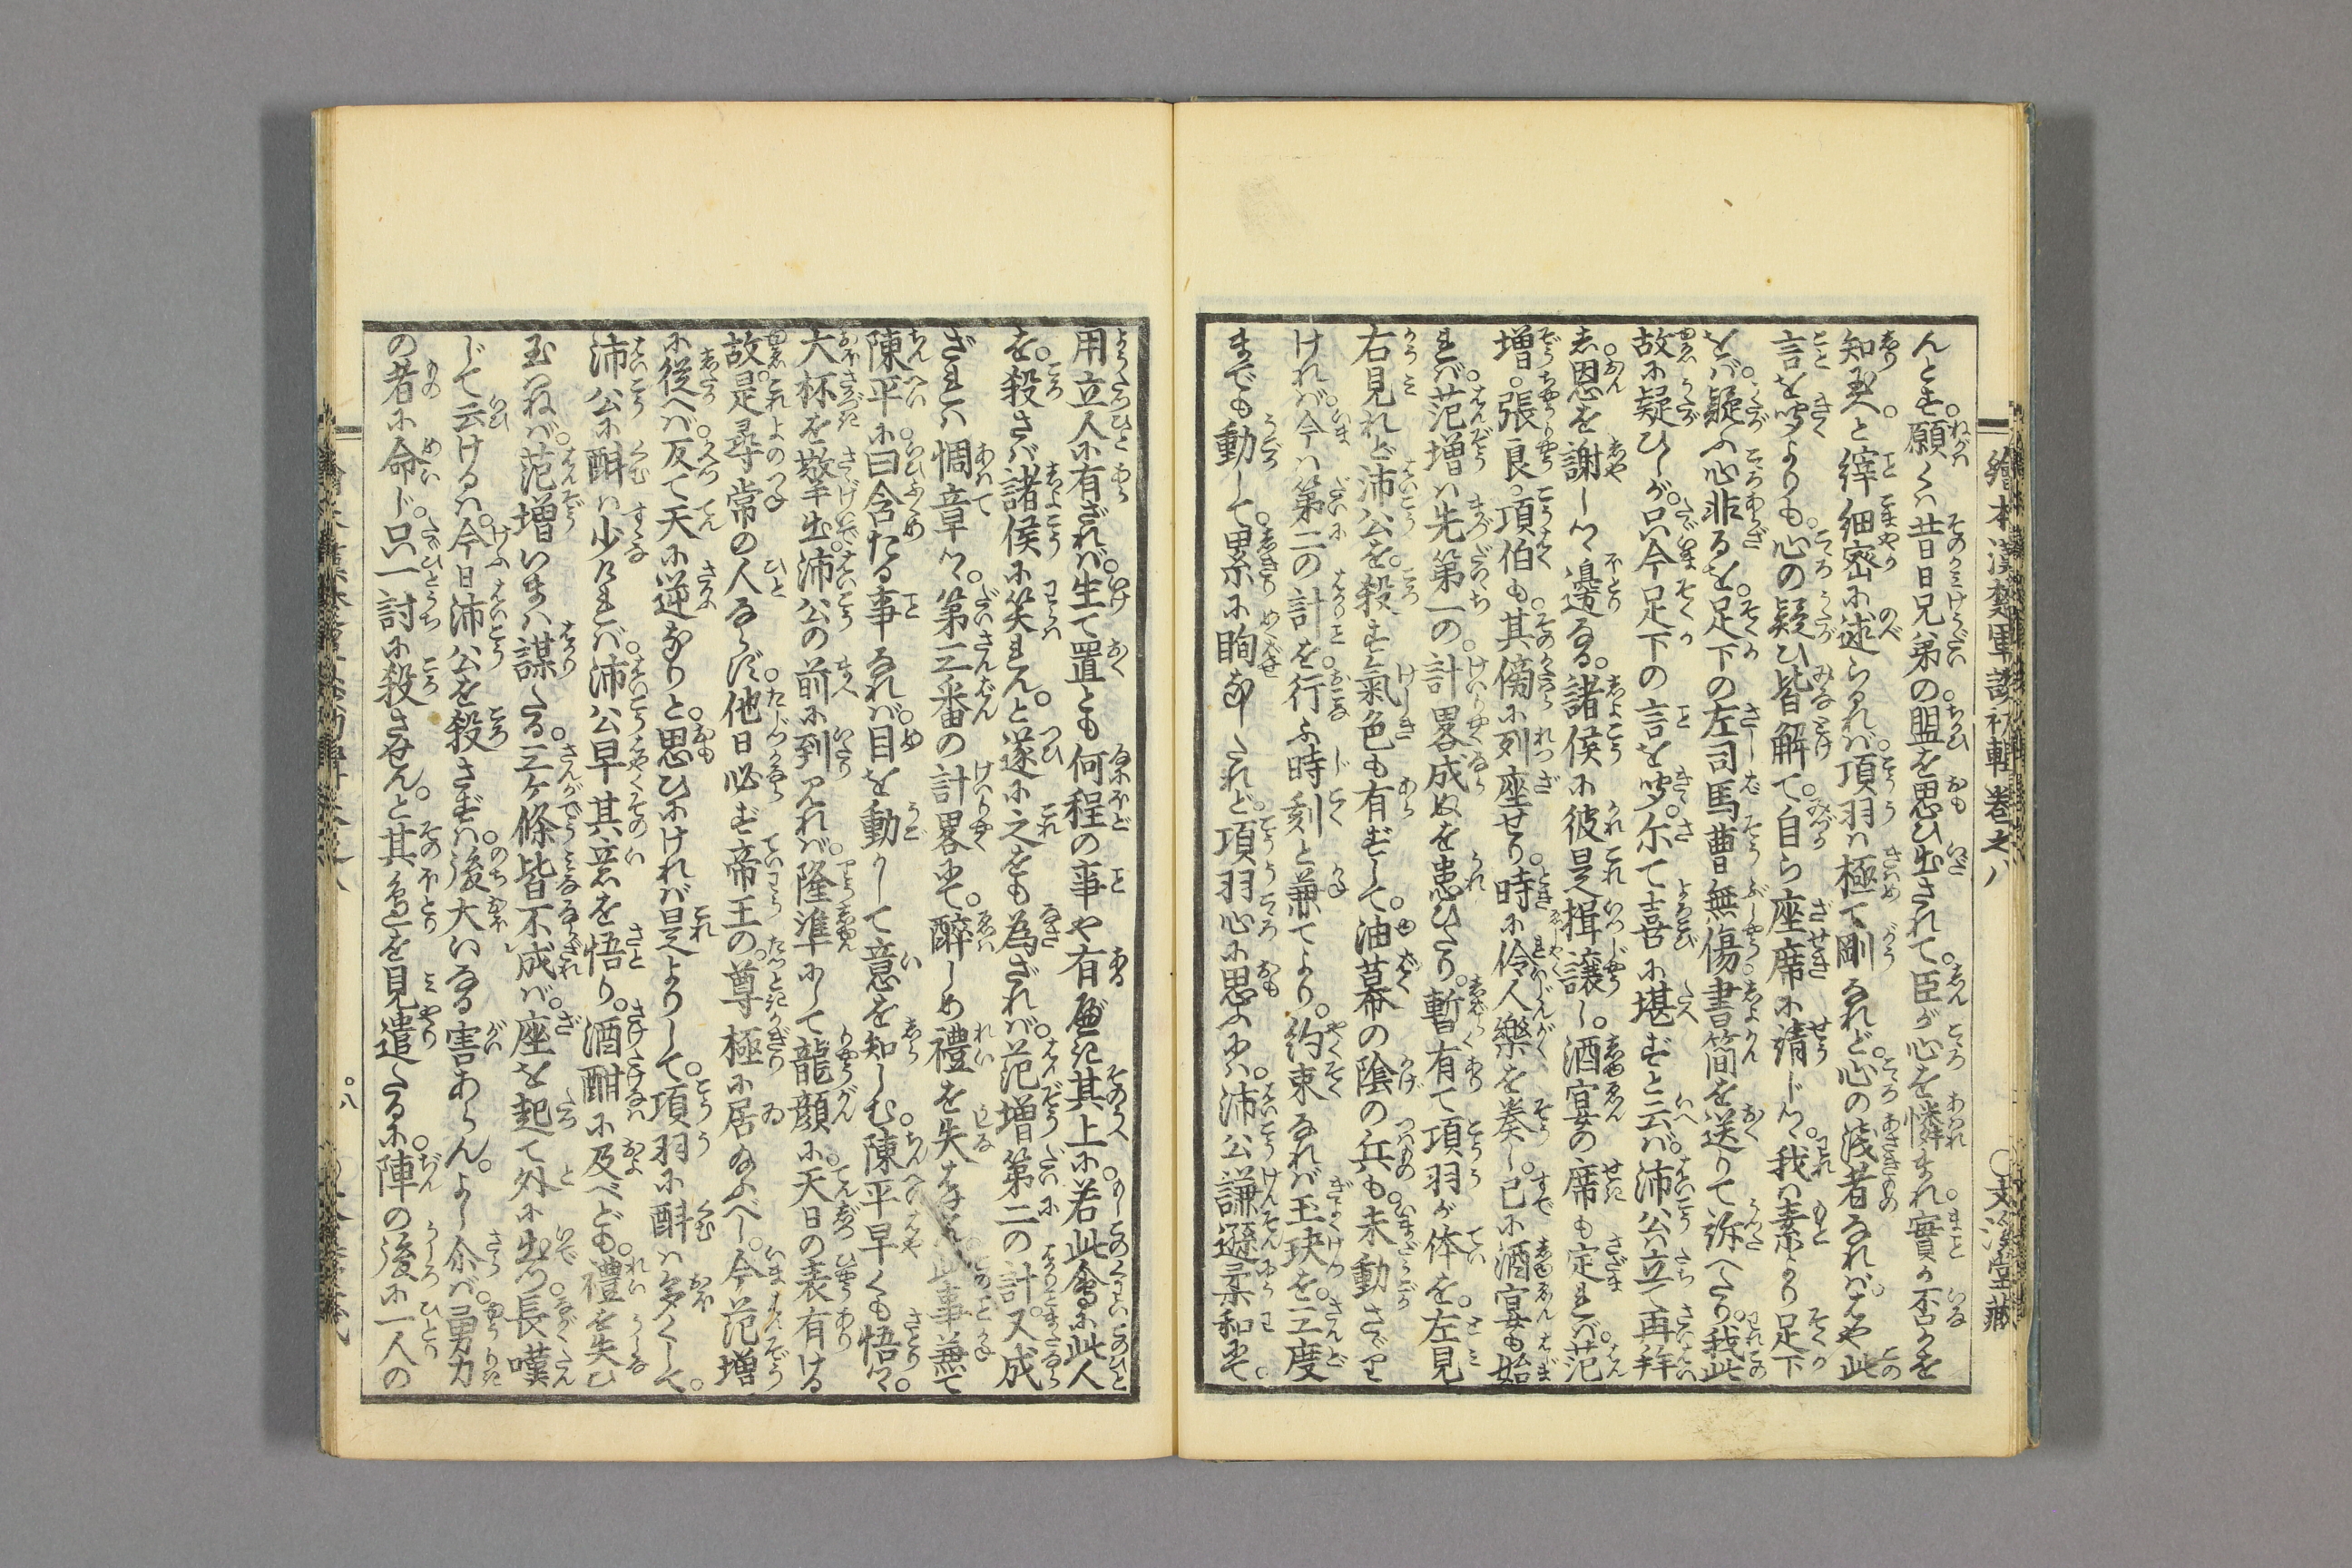 繪本漢楚軍談初輯卷之八　○文溪堂藏
んとす。願くは昔日兄弟の盟を思ひ出されて。臣が心を憐まれ。實か否かを
知玉へ。と繹細密に述らるれば。項羽は極て剛なれど。心の淺者なれば。はや此
言を聞よりも。心の疑ひ皆解て。自ら座席に請じつゝ。我は素より足下
をば。疑ふ心非るを。足下の左司馬曹無傷。書簡を送りて訴へたり。我此
故に疑ひしが。只今足下の言を聞。尓て喜に堪ずと云ば。沛公立て再拜
し。恩を謝しつゝ邊なる。諸侯に彼是揖譲し。酒宴の席も定れば。范
増。張良。項伯も。其傍に列座せり。時に伶人樂を奏し。已に酒宴も始
れば。范増は先第一の。計畧成ぬを患ひたり。暫有て項羽が体を。左見
右見れど沛公を。殺す氣色も有ずして。油幕の陰の兵も。未動さざり
ければ。今は第二の計を。行ふ時刻と兼てより。約束なれば玉玦を。三度
までも動して。累に眴なしたれど。項羽心に思ふには。沛公謙遜柔和にて。
用立人に有ざれば。生て置とも何程の事や有べき其上に。若此會に此人
を。殺さば諸侯に笑れん。と遂に之をも為ざれば。范増第二の計。又成
ざれは惆章つゝ。第三番の計畧にて。醉しめ禮を失はせんと。此事兼て
陳平に。曰含たる事なれば。目を動かして意を知しむ。陳平早くも悟つゝ。
大杯を擎出。沛公の前に到り見れば。隆準にして龍顔に。天日の表有ける
故。是尋常の人ならず。他日必ず帝王の。尊極に居給ふべし。今范増
に從へば。反て天に逆なりと。思ひにければ是よりして。項羽に酙は多くして。
沛公に酙は少なれば。沛公早其意を悟り。酒酣に及べども。禮を失ひ
玉はねば。范増いまは謀たる。三ヶ條皆不成ば。座を起て外に出。長嘆
じて云けるは。今日沛公を殺さずは。後大いなる害あらん。よし尓ば。勇力
の者に命じ。只一討に殺させん。と其邊を見遣たるに。陣の後に一人の
○八